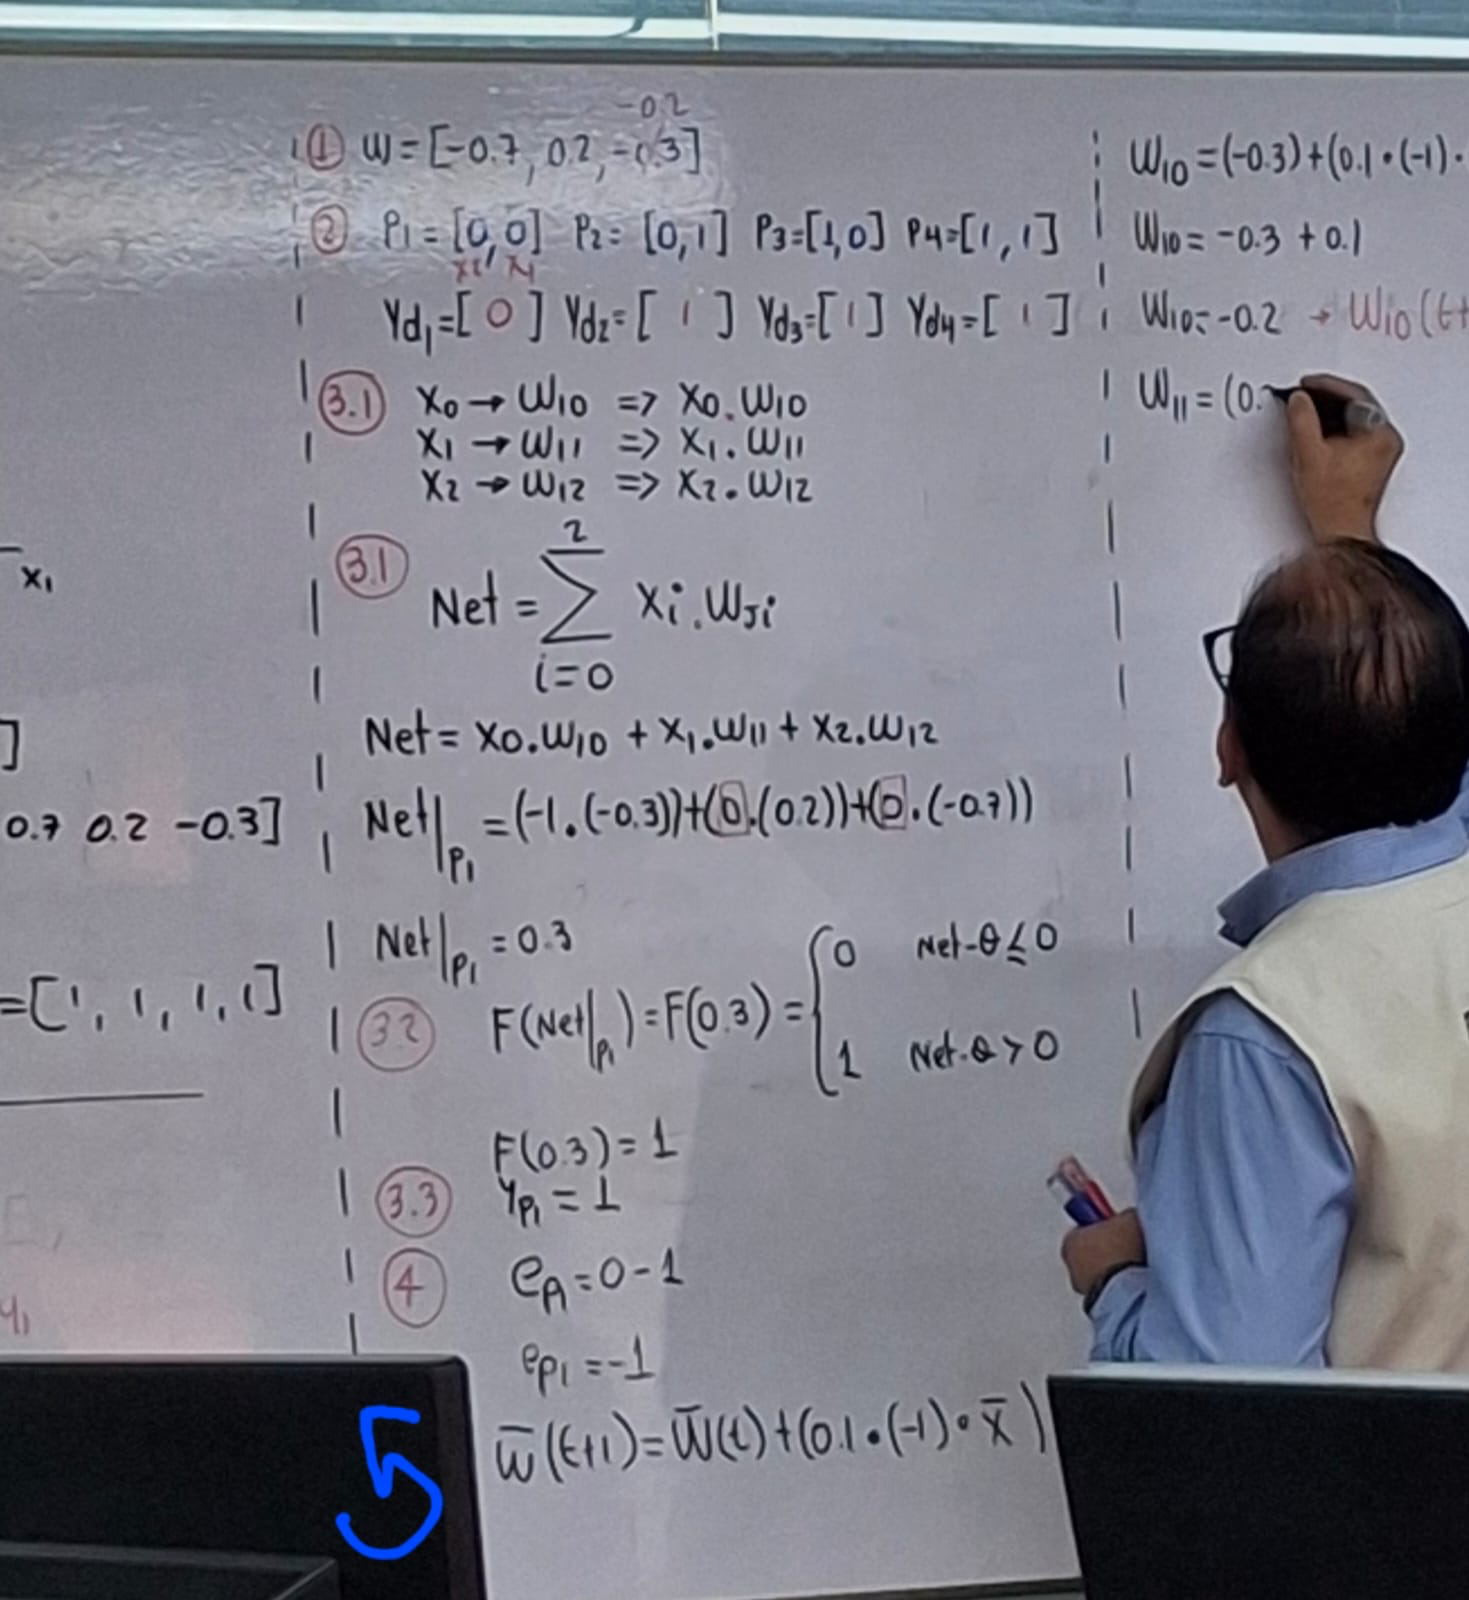 x₁
]
0.7 0.2 -0.3]
=[1, 1, 1, 1]
y₁
-0.2
① W = [-0.7, 0.2, -0.3]
② P₁ = [0, 0] P₂ = [0,1] P₃=[1,0] P₄=[1, 1]
x₂ x₁
Yd₁=[ 0 ] Yd₂=[ 1 ] Yd₃=[1] Yd₄=[ 1 ]
3.1 x₀ → W₁₀ => x₀.W₁₀
x₁ → W₁₁ => x₁.W₁₁
x₂ → W₁₂ => x₂.W₁₂
3.1 Net = ∑ᵢ₌₀² xᵢ.Wⱼᵢ
Net = x₀.W₁₀ + x₁.W₁₁ + x₂.W₁₂
Net|P₁ = (-1.(-0.3))+(0.(0.2))+(0.(-0.7))
Net|P₁ = 0.3
3.2 F(Net|P₁) = F(0.3) = { 0 Net-θ ≤ 0
1 Net-θ > 0
F(0.3) = 1
3.3 yP₁ = 1
4 eA = 0 - 1
eP₁ = -1
5 W̄(t+1) = W̄(t)+(0.1•(-1)•x̄)
W₁₀ = (-0.3)+(0.1•(-1)•
W₁₀ = -0.3 + 0.1
W₁₀ = -0.2 → W₁₀(t+
W₁₁ = (0.